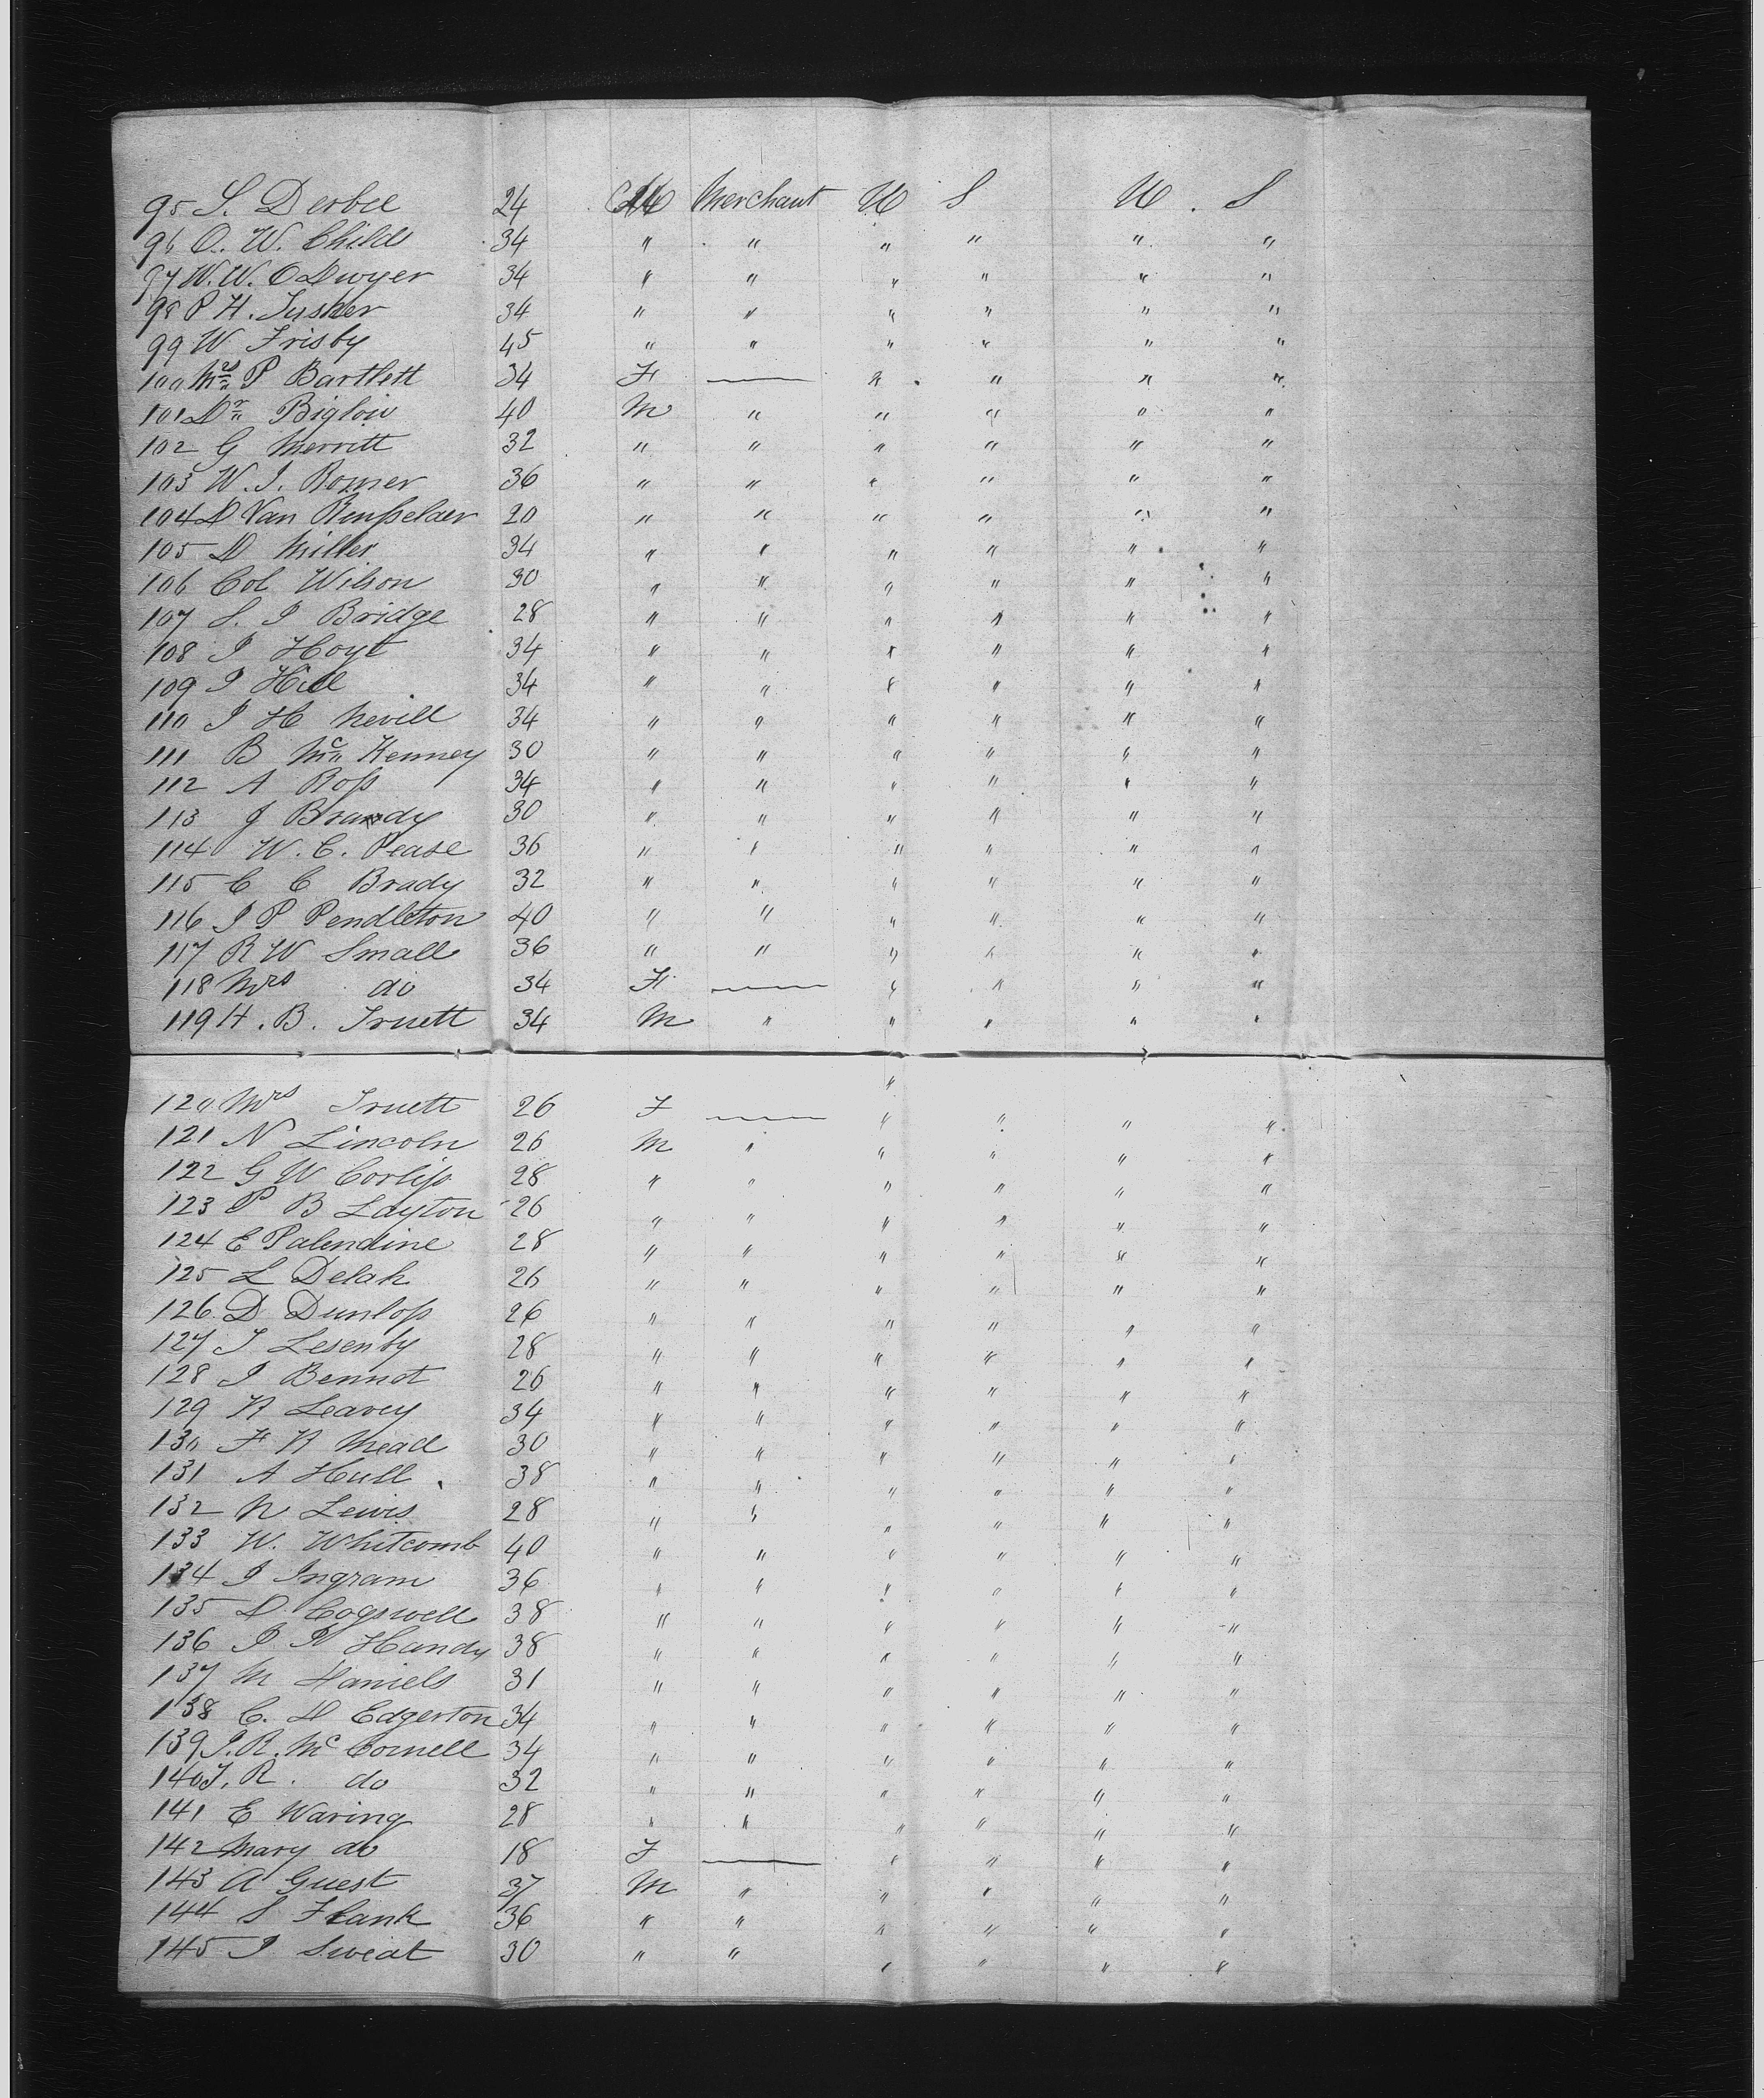 95 S. Derbee 24 M Merchant U S U. S
96 O. W. Childs 34 " " " " " "
97 W. W. O Dwyer 34 " " " " " "
98 P H. Tusker 34 " " " " " "
99 W Frisby 45 " " " " " "
100 Mrs P Bartlett 34 F —— " " " "
101 Dr Biglow 40 M " " " " "
102 G Merritt 32 " " " " " "
103 W. J. Romer 36 " " " " " "
104 D Van Rensselaer 20 " " " " " "
105 D Miller 34 " " " " " "
106 Col Wilson 30 " " " " " "
107 S. J Bridge 28 " " " " " "
108 J Hoyt 34 " " " " " "
109 J Hill 34 " " " " " "
110 J H Nevill 34 " " " " " "
111 B Mc Kenney 30 " " " " " "
112 A Ross 34 " " " " " "
113 J Brandy 30 " " " " " "
114 W. C. Pease 36 " " " " " "
115 C C Brady 32 " " " " " "
116 J P Pendleton 40 " " " " " "
117 R W Small 36 " " " " " "
118 Mrs do 34 F —— " " " "
119 H. B. Truett 34 M " " " " "
120 Mrs Truett 26 F —— " " " "
121 N Lincoln 26 M " " " " "
122 G W Corliss 28 " " " " " "
123 P B Layton 26 " " " " " "
124 E Palendine 28 " " " " " "
125 L Delah 26 " " " " " "
126 D Dunlop 26 " " " " " "
127 J Lesenby 28 " " " " " "
128 J Bennot 26 " " " " " "
129 R Leavey 34 " " " " " "
130 F R Mead 30 " " " " " "
131 A Hull 38 " " " " " "
132 N Lewis 28 " " " " " "
133 W. Whitcomb 40 " " " " " "
134 J Ingram 36 " " " " " "
135 D Cogswell 38 " " " " " "
136 J R Handy 38 " " " " " "
137 M Daniels 31 " " " " " "
138 C. D Edgerton 34 " " " " " "
139 J. R. Mc Connell 34 " " " " " "
140 T. R. do 32 " " " " " "
141 E Waring 28 " " " " " "
142 Mary do 18 F —— " " " "
143 A Guest 37 M " " " " "
144 S Flank 36 " " " " " "
145 J Sweat 30 " " " " " "